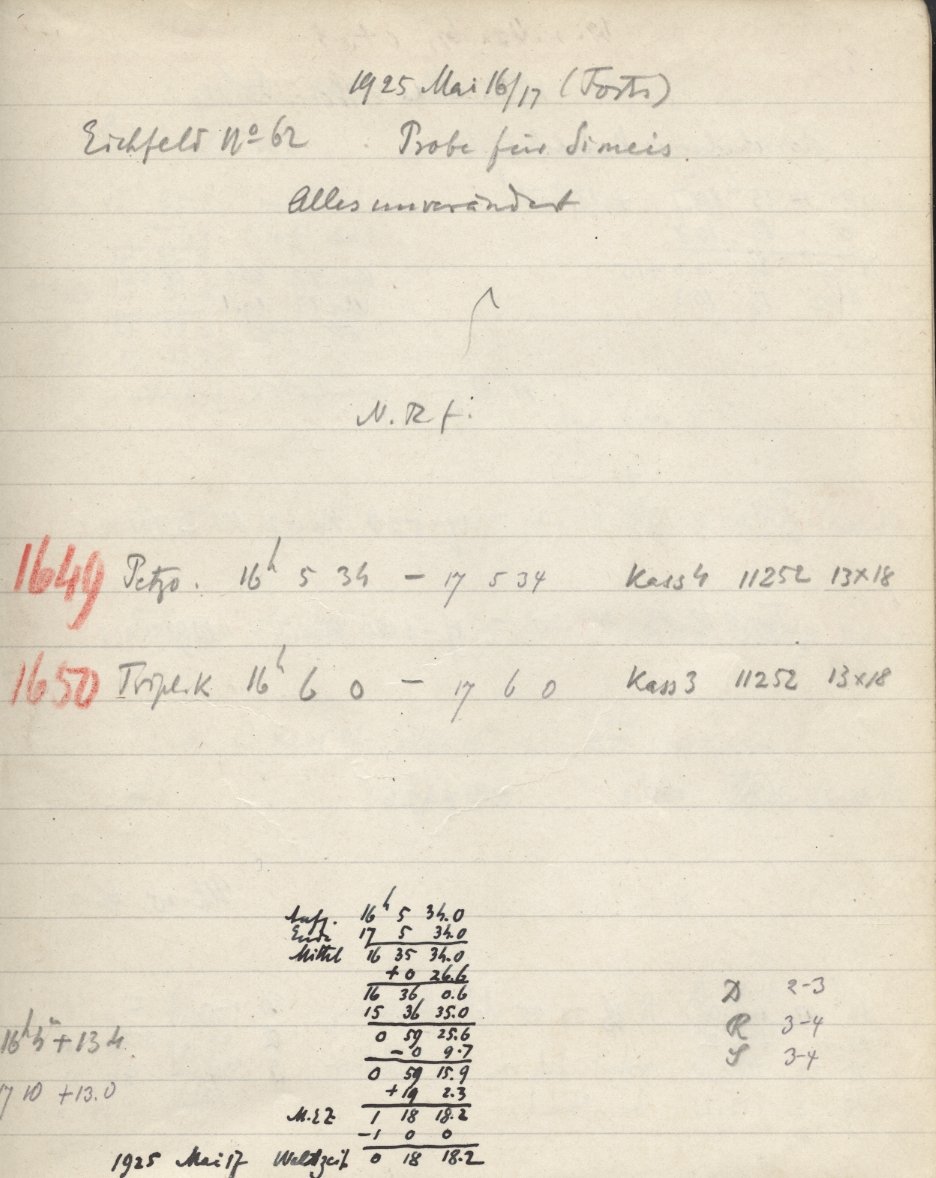 1925 Mai 16/17 (Forts)
Eichfeld No 62 Probe für Simeis.
Alles unverändert
N. R f.
1649 Petzv. 16h 5 34 – 17 5 34 Kass 4 11252 13×18
1650 Triplek 16h 6 0 – 17 6 0 Kass 3 11252 13×18
Anf. 16h 5 34.0
Ende 17 5 34.0
Mittel 16 35 34.0
+0 26.6
16 36 0.6
15 36 35.0
0 59 25.6
–0 9.7
0 59 15.9
+19 2.3
M.E.Z 1 18 18.2
–1 0 0
1925 Mai 17 Weltzeit 0 18 18.2
D 2-3
R 3-4
S 3-4
17 10 +13.0